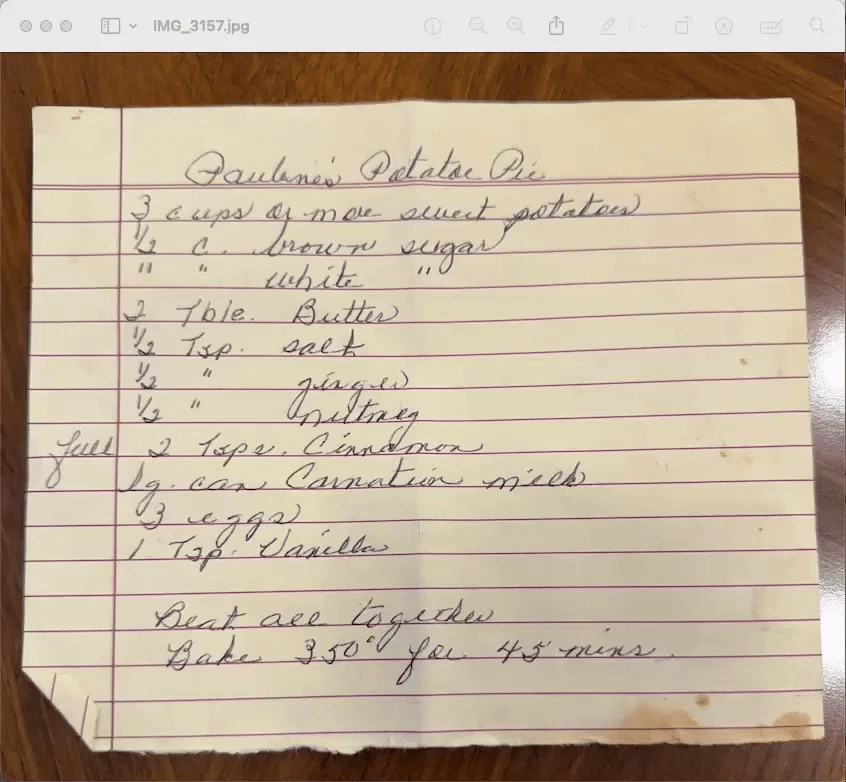 IMG_3157.jpg
Pauline's Potatoe Pie
3 cups or more sweet potatoes
1/2 c. brown sugar
" " white "
2 Tble. Butter
1/2 Tsp. salt
1/2 " ginger
1/2 " nutmeg
full 2 Tsps. Cinnamon
lg. can Carnation milk
3 eggs
1 Tsp. Vanilla
Beat all together
Bake 350° for 45 mins.